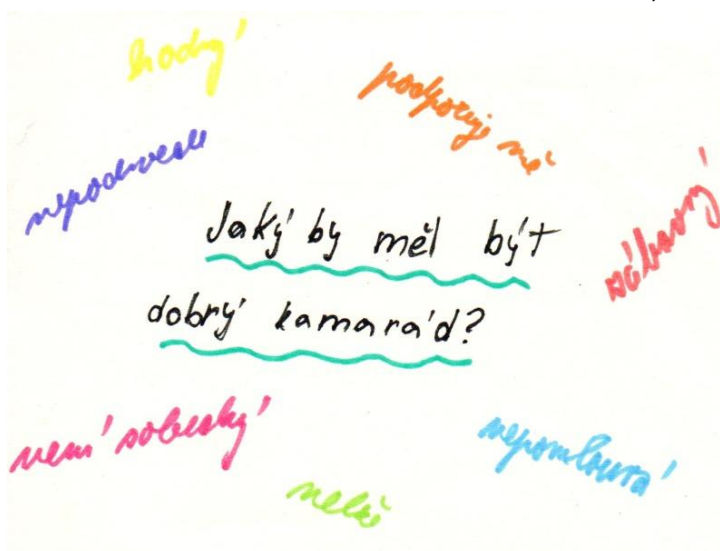 hodný
podporuje mě
nepodvede
zábavný
Jaký by měl být
dobrý kamarád?
není sobecký
nepomlouvá
nelže